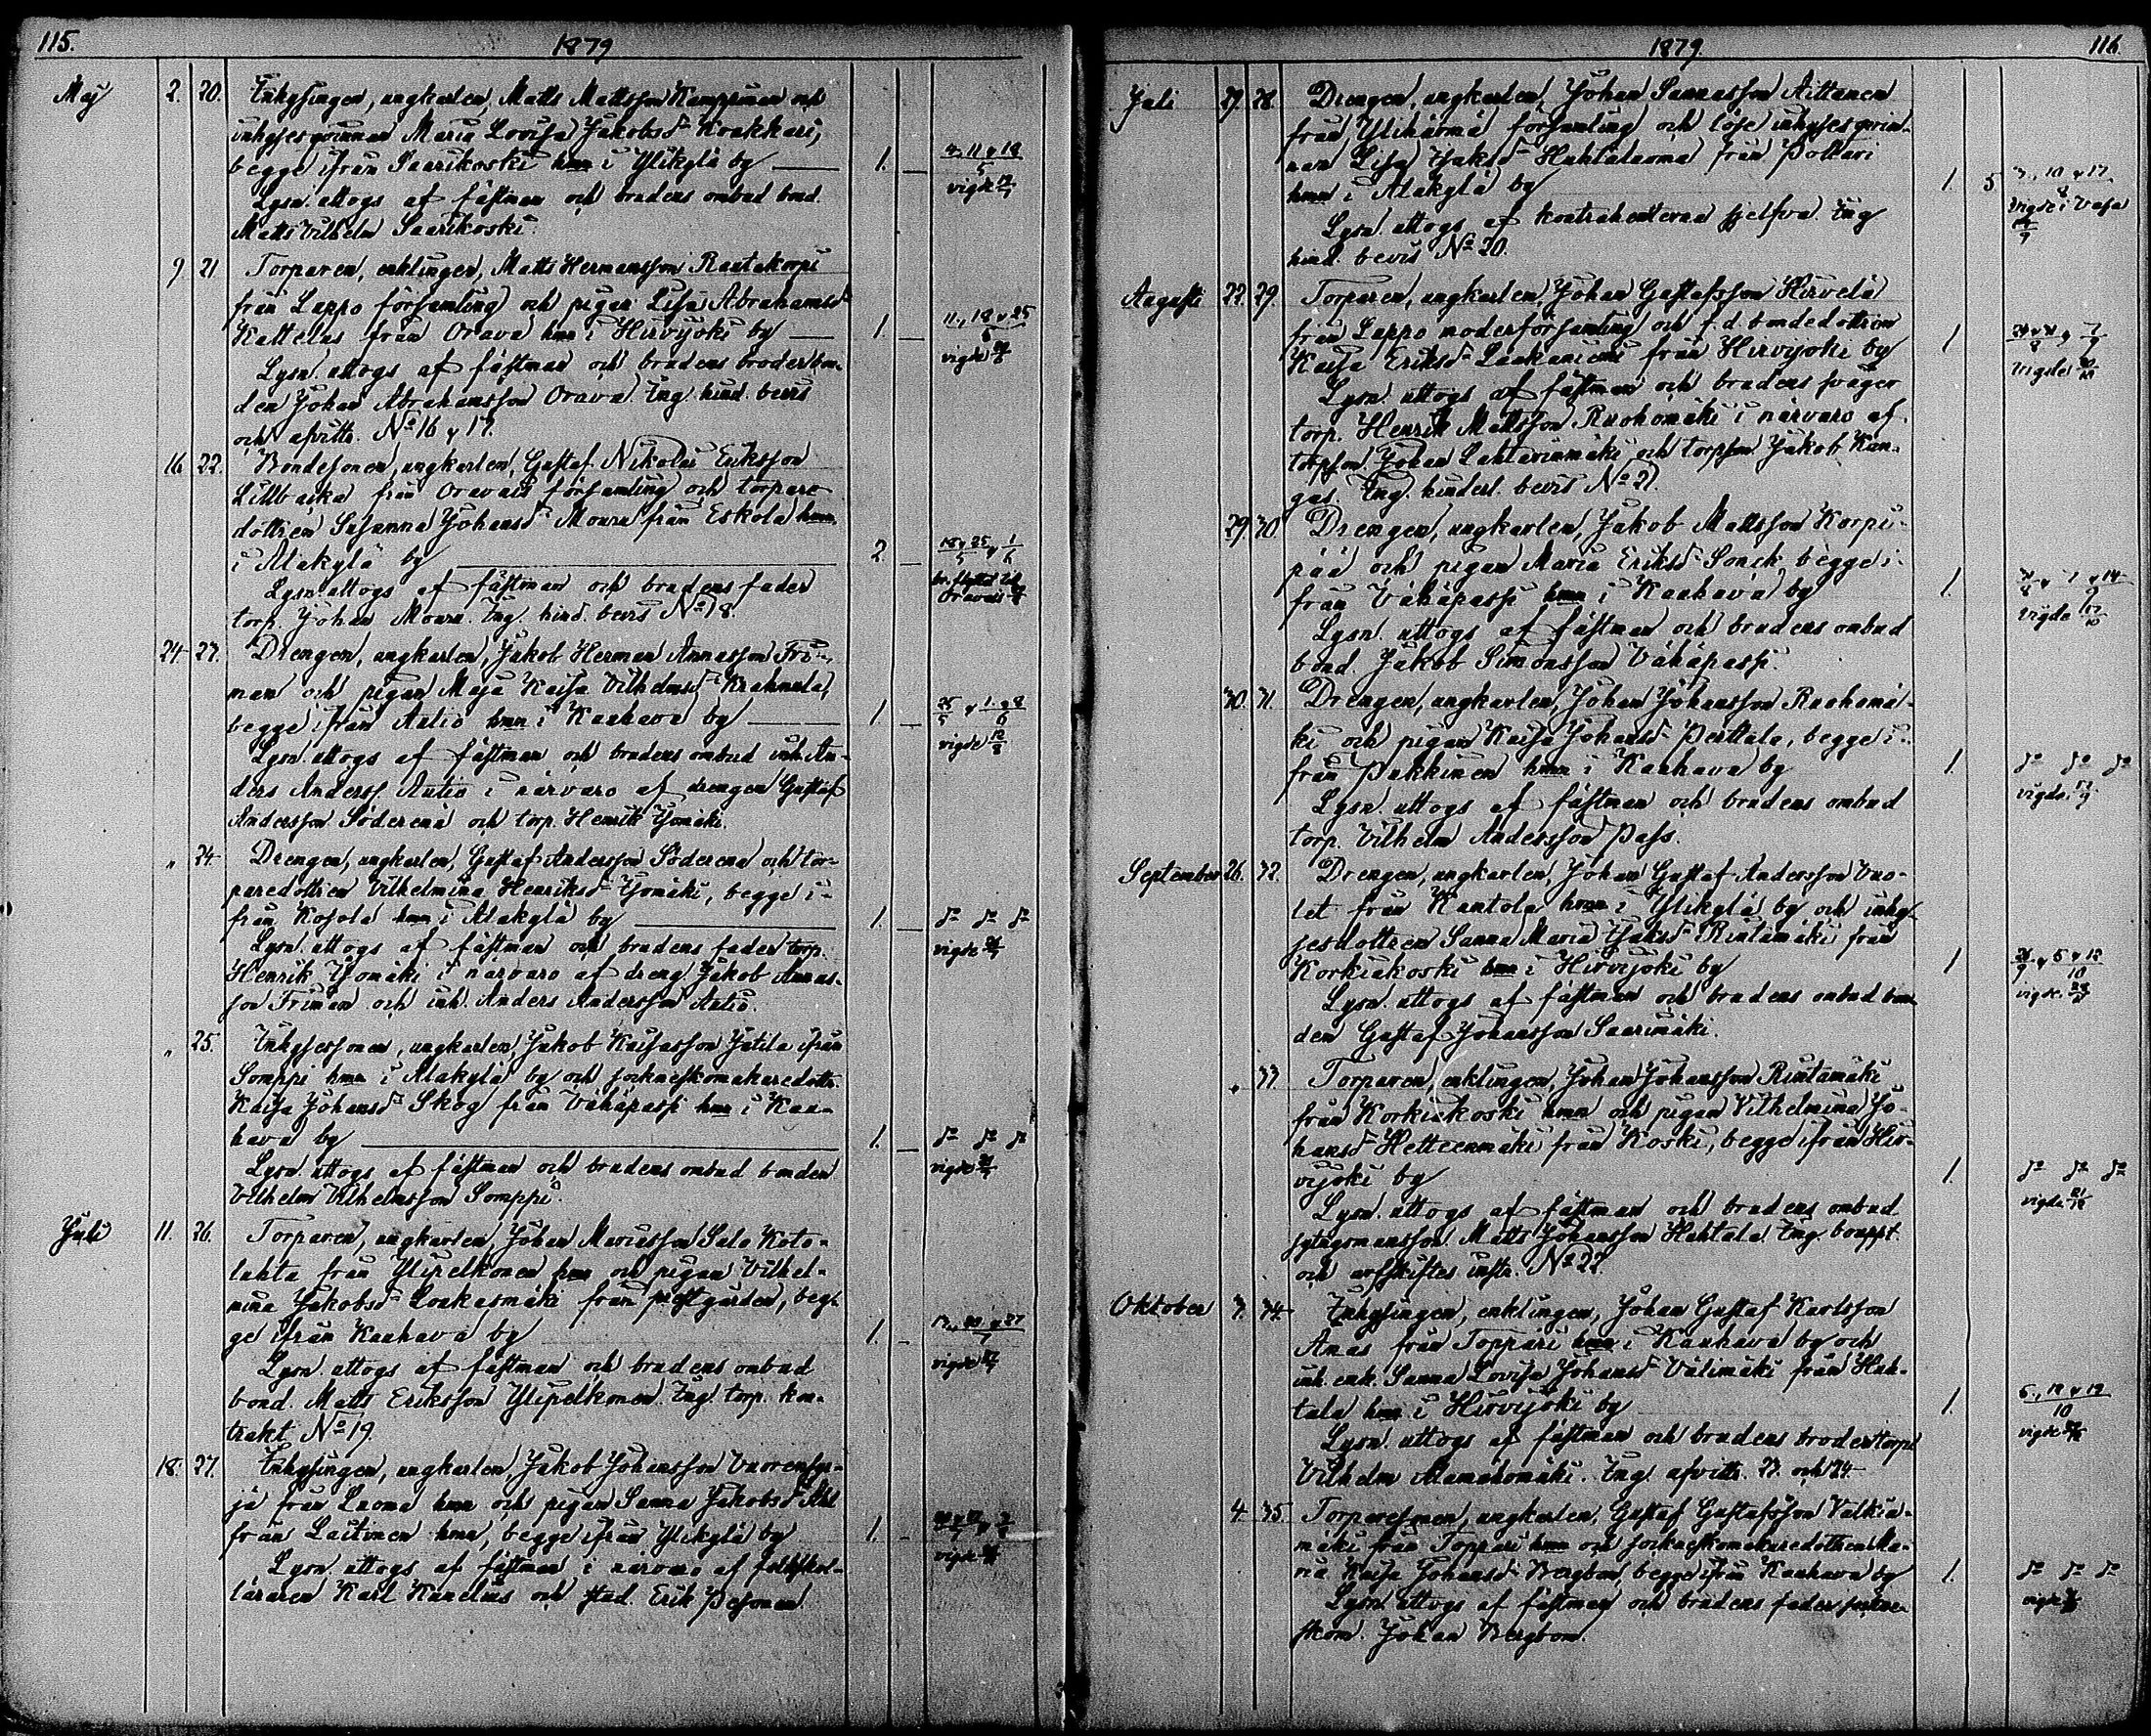 115. 1879
Maj 2. 20. Inhysingen, ungkarlen, Matts Mattsson Kamppinen och
inhysesqvinnan Maria Lovisa Jakobsd:r Kvakkari,
begge ifrån Saarikoski hmn i Ylikylä by 1. 4, 11 & 18 / 5
Lysn. uttogs af fästman och brudens ombud bond. vigde
Matts Vilhelm Saarikoski.
9. 21 Torparen, enklingen, Matts Hermansson Rantakorpi
från Lappo församling och pigan Lisa Abrahamsd:r
Kattelus från Orava hmn i Hirvijoki by 1. 11, 18 & 25 / 5
Lysn. uttogs af fästman och brudens broder bon- vigde
den Johan Abrahamsson Orava. Ing. hind. bevis
och afvittr. No 16 & 17.
16 22. Bondesonen, ungkarlen, Gustaf Nikolai Eriksson
Lillbacka från Oravais församling och torpare
dottren Susanna Johansd:r Moura från Eskola hmn
i Alakylä by 2. 18 & 25 / 5 & 1 / 6
Lysn. uttogs af fästman och brudens fader br. flyttat till
torp. Johan Moura. Ing. hind. bevis No 18. Oravais
24 23. Drengen, ungkarlen, Jakob Herman Annasson Fri-
man och pigan Maja Kaisa Vilhelmsd:r Krahnula,
begge ifrån Autio hmn i Kauhava by 1. 25 / 5 & 1 & 8 / 6
Lysn. uttogs af fästman och brudens ombud inh. An- vigde
ders Anderss. Autio i närvaro af drengen Gustaf
Andersson Söderena och torp. Henrik Yomäki.
" 24 Drengen, ungkarlen, Gustaf Andersson Söderena och tor-
paredottren Vilhelmina Henriksd:r Yomäki, begge i-
från Kosola hmn i Alakylä by 1. d:o d:o d:o
Lysn. uttogs af fästman och brudens fader torp. vigde
Henrik Yomäki i närvaro af dreng. Jakob Annas-
son Friman och inh. Anders Andersson Autio.
" 25. Inhysessonen, ungkarlen, Jakob Kaisasson Jätilä ifrån
Somppi hmn i Alakylä by och sockneskomakaredottr.
Kaisa Johansd:r Skog från Vähäpassi hmn i Kau-
hava by 1. d:o d:o d:o
Lysn. uttogs af fästman och brudens ombud bonden vigde
Vilhelm Vilhelmsson Somppi.
Juli 11. 26. Torparen, ungkarlen, Johan Mariasson Salo Koto-
lahta från Ylipelkonen hmn och pigan Vilhel-
mina Jakobsd:r Loukasmäki från prestgården, beg-
ge ifrån Kauhava by 1. 13, 20 & 27 / 7
Lysn. uttogs af fästman och brudens ombud vigde
bond. Matts Eriksson Ylipelkonen. Ing. torp. kon-
trakt No 19.
18. 27. Inhysingen, ungkarlen, Jakob Johansson Vuorensyr-
jä från Luoma hmn och pigan Sanna Jakobsd:r
från Laitinen hmn, begge ifrån Ylikylä by 1.
Lysn. uttogs af fästman i närvaro af folkskol- vigde
läraren Karl Kunelius och stud. Erik Pesonen.
1879. 116
Juli 29. 28. Drengen, ungkarlen, Johan Sannasson Aittanen
från Ylihärmä församling och löse inhysesqvin-
nan Lisa Jaksd:r Huhtalarma från Pottari
hmn i Alakylä by 1. 5 3, 10 & 17 / 8
Lysn. uttogs af kontrahenterna sjelfva. Ing vigde i Vasa
hind. bevis No 20.
Augusti 22. 29. Torparen, ungkarlen, Johan Gustafsson Hirvelä
från Lappo moderförsamling och f.d. bondedottren
Kaisa Eriksd:r Laukaniemi från Hirvijoki by 1
Lysn. uttogs af fästman och brudens svåger vigde
torp. Henrik Mattsson Ruohomäki i närvaro af
torpson. Johan Lahtarinmäki och torpson Jakob Kan-
gas. Ing. hinderl. bevis No 21.
29. 30. Drengen, ungkarlen, Jakob Mattsson Korpi-
pää och pigan Maria Eriksd:r Sonck, begge i-
från Vähäpassi hmn i Kauhava by 1. 31 / 8 & 7 & 14 / 9
Lysn. uttogs af fästman och brudens ombud vigde
bond. Jakob Simonsson Vähäpassi.
30. 31. Drengen, ungkarlen, Johan Johansson Ruohomä-
ki och pigan Kaisa Johansd:r Perttala, begge i-
från Pukkinen hmn i Kauhava by 1. d:o d:o d:o
Lysn. uttogs af fästman och brudens ombud vigde
torp. Vilhelm Andersson Pass.
September 26. 32. Drengen, ungkarlen, Johan Gustaf Andersson Vuo-
let från Kantola hmn i Ylikylä by och inhy-
sesdottren Sanna Maria Jaksd:r Rintamäki från
Korkiakoski hmn i Hirvijoki by 1 28 / 9 & 5 & 12 / 10
Lysn. uttogs af fästman och brudens ombud bon vigde
den Gustaf Johansson Saarimäki.
" 33. Torparen, enklingen, Johan Johansson Rintamäki
från Korkiakoski hmn och pigan Vilhelmina Jo-
hansd:r Hetteenmäki från Koski, begge ifrån Hir-
vijoki by 1. d:o d:o d:o
Lysn. uttogs af fästman och brudens ombud vigde
sytngsmansson Matts Johansson Huhtala. Ing. bouppt.
och arfskiftes instr. No 22.
Oktober 3. 34. Inhysingen, enklingen, Johan Gustaf Karlsson
Anas från Toppari hmn i Kauhava by och
inh. enk. Sanna Lovisa Johansd:r Välimäki från Huh-
tala hmn i Hirvijoki by 1. 5, 12 & 19 / 10
Lysn. uttogs af fästman och brudens broder torp. vigde
Vilhelm Alamahomäki. Ing. afvittr. 23 och 24.
4. 35. Torparesonen, ungkarlen, Gustaf Gustafsson Valkia-
mäki från Toppari hmn och sockneskomakaredottren Ma-
ria Kaisa Johansd:r Bergbom, begge ifrån Kauhava by 1. d:o d:o d:o
Lysn. uttogs af fästman och brudens fader sockne- vigde
skom. Johan Bergbom.